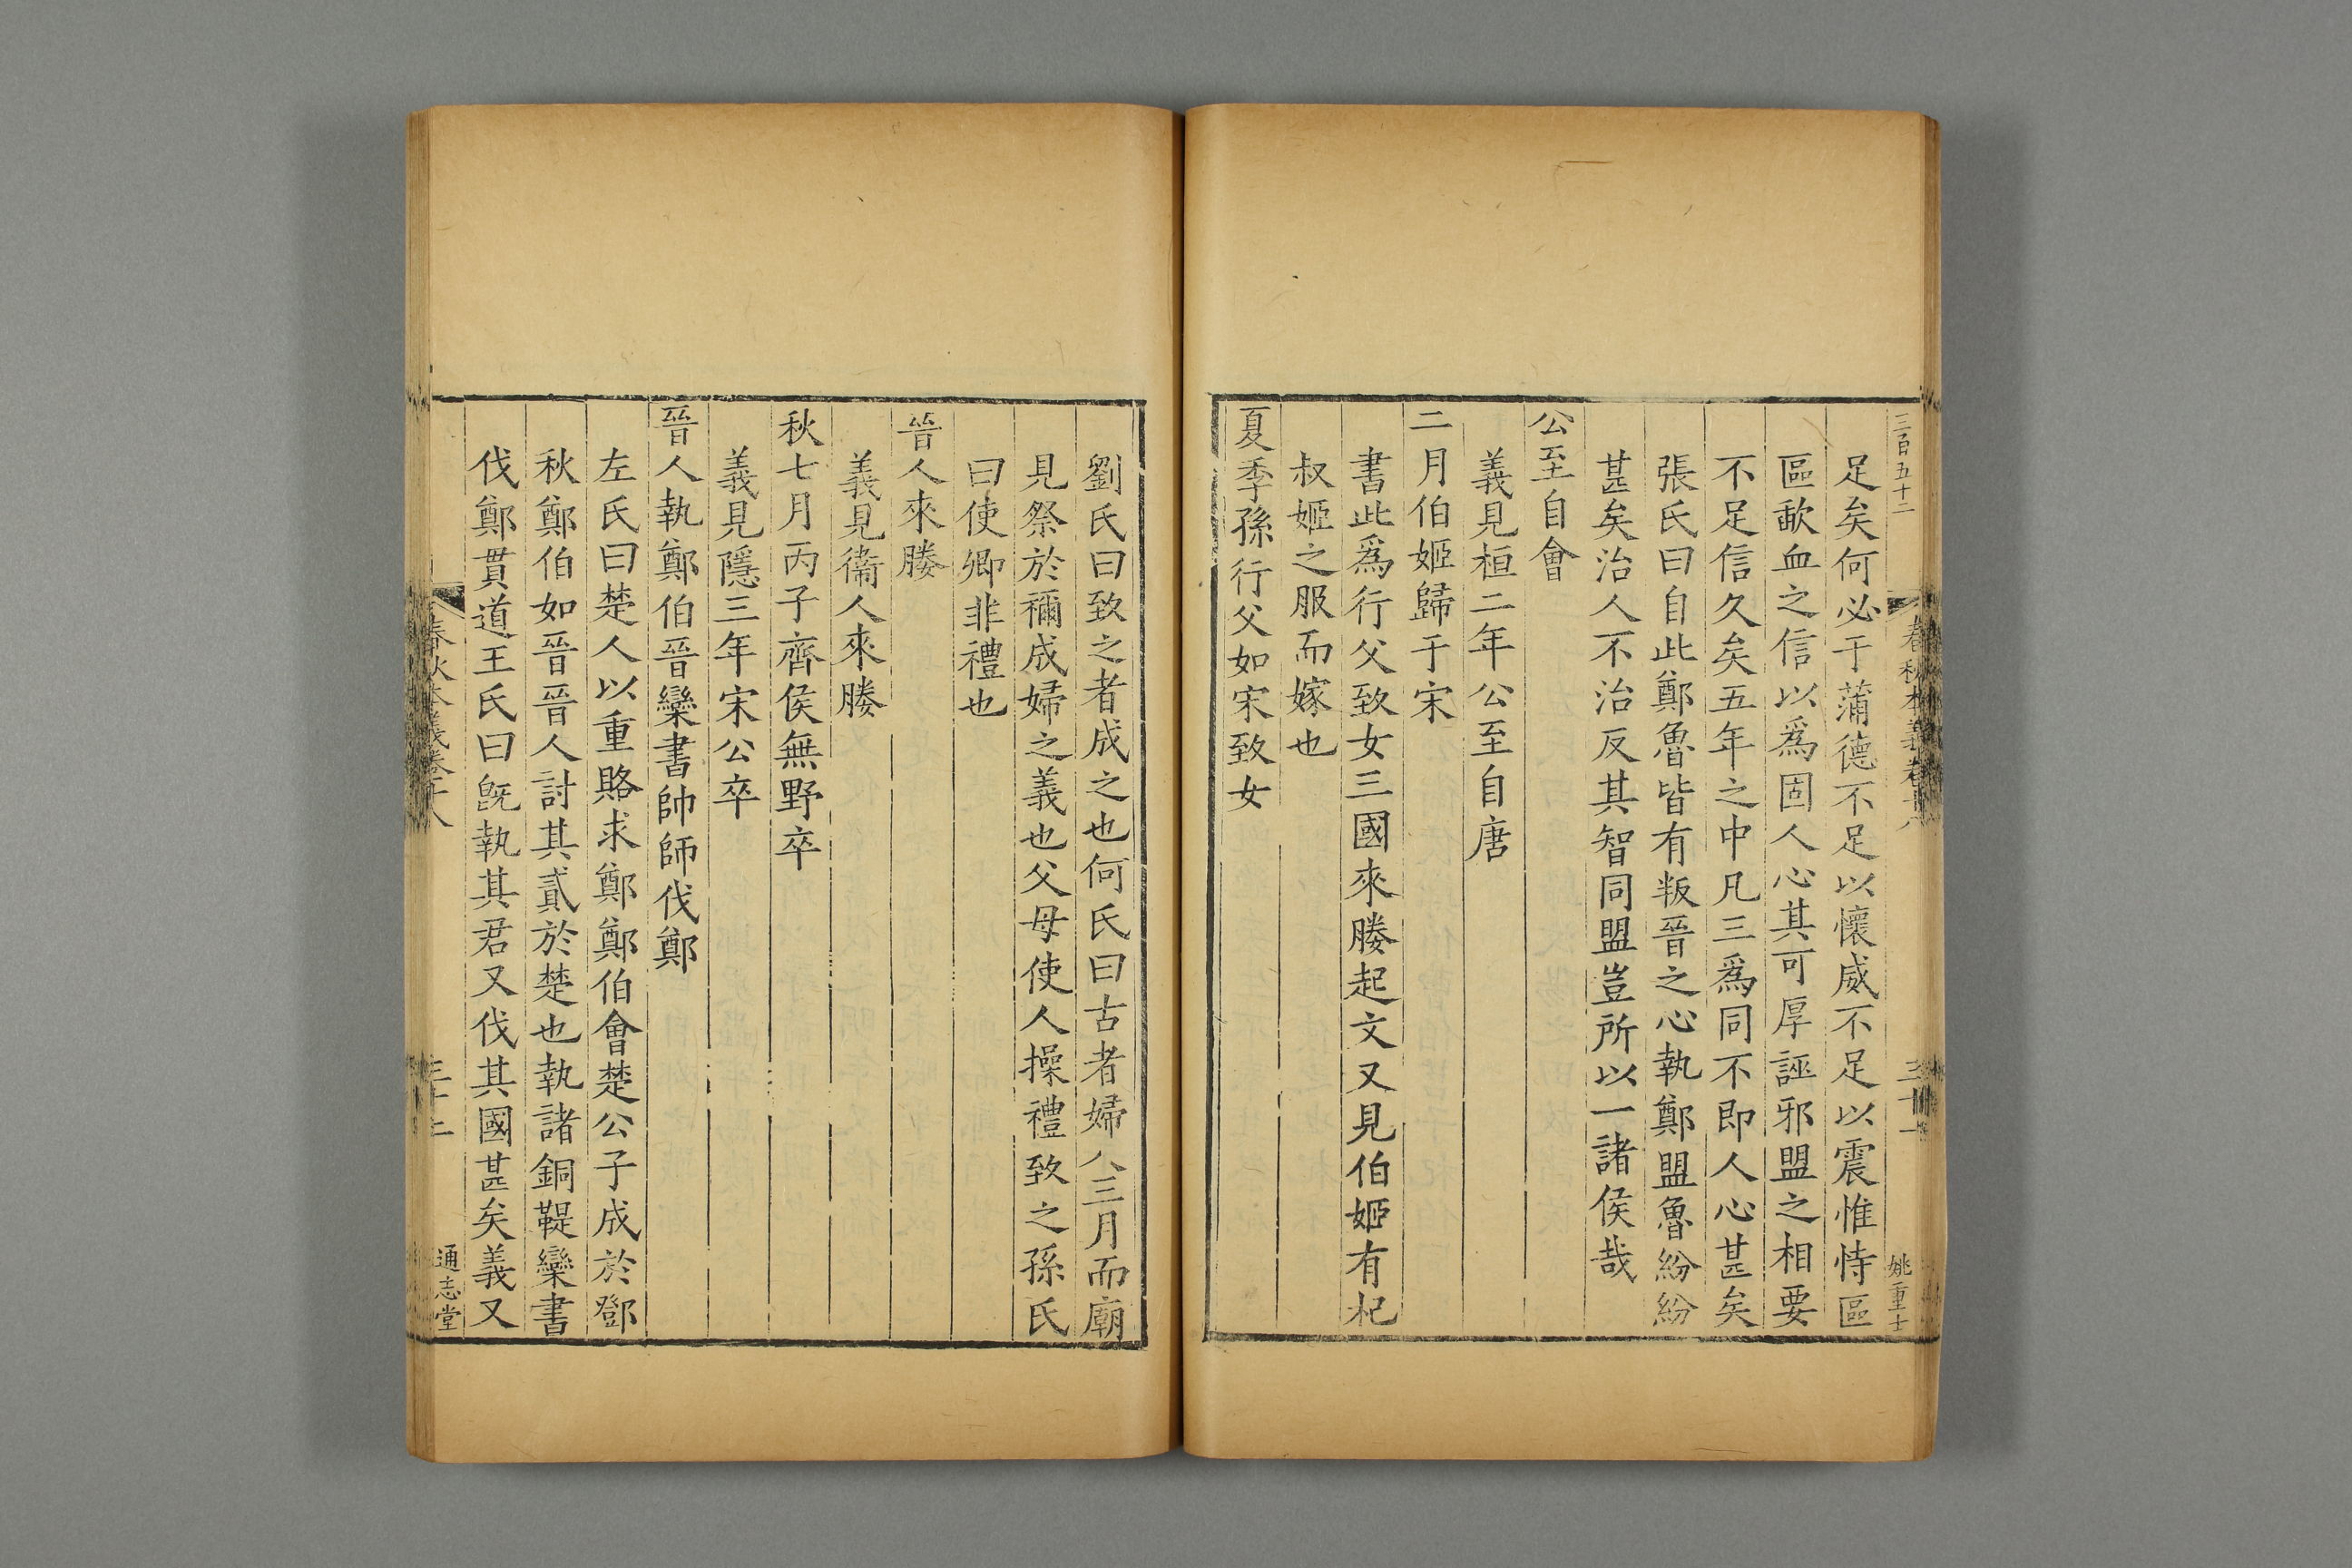 三百五十二
春秋本義卷十八
三十一
姚重士
足矣何必于蒲德不足以懷威不足以震惟恃區
區歃血之信以爲固人心其可厚誣邪盟之相要
不足信久矣五年之中凡三爲同不即人心甚矣
張氏曰自此鄭魯皆有叛晉之心執鄭盟魯紛紛
甚矣治人不治反其智同盟豈所以一諸侯哉
公至自會
義見桓二年公至自唐
二月伯姬歸于宋
書此爲行父致女三國來媵起文又見伯姬有杞
叔姬之服而嫁也
夏季孫行父如宋致女
劉氏曰致之者成之也何氏曰古者婦人三月而廟
見祭於禰成婦之義也父母使人操禮致之孫氏
曰使卿非禮也
晉人來媵
義見衞人來媵
秋七月丙子齊侯無野卒
義見隱三年宋公卒
晉人執鄭伯晉欒書帥師伐鄭
左氏曰楚人以重賂求鄭鄭伯會楚公子成於鄧
秋鄭伯如晉晉人討其貳於楚也執諸銅鞮欒書
伐鄭貫道王氏曰旣執其君又伐其國甚矣義又
春秋本義卷十八
通志堂